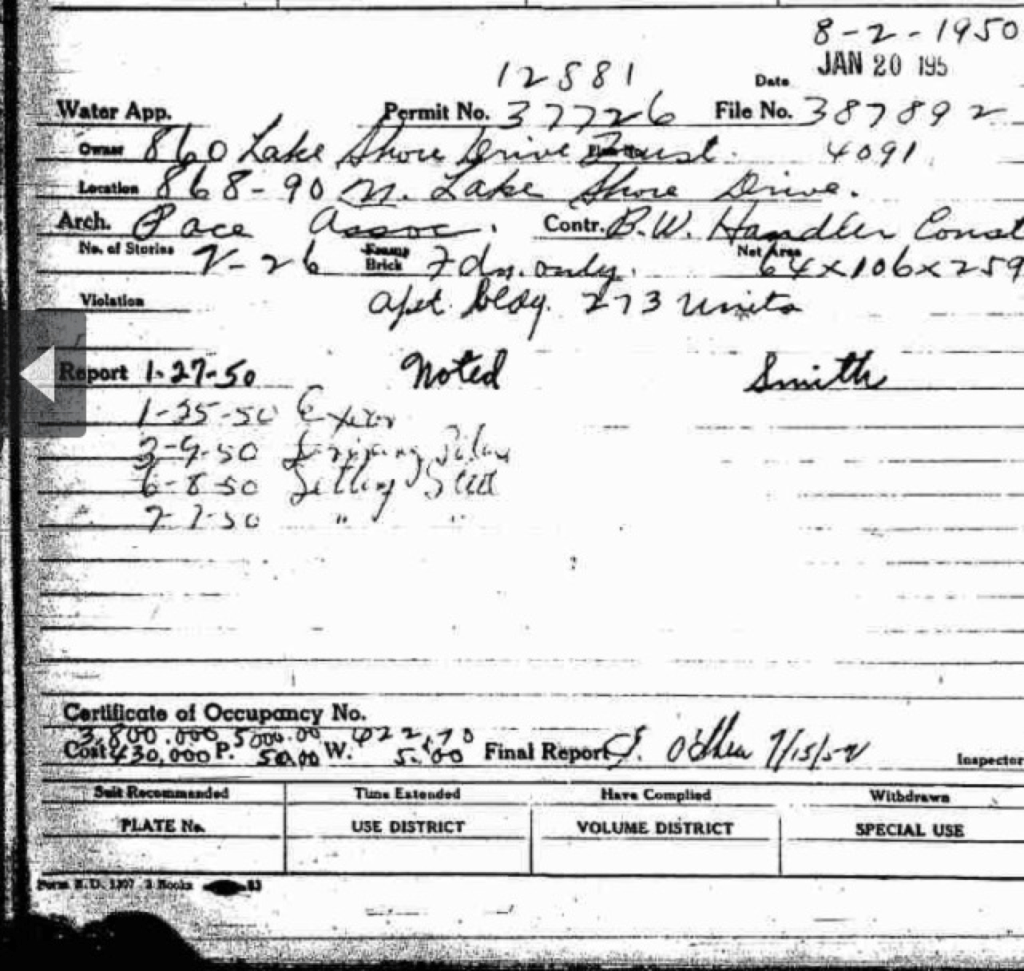 8-2-1950
12881 Date JAN 20 195
Water App. Permit No. 37726 File No. 387892
Owner 860 Lake Shore Drive Trust. 4091
Location 868-90 N. Lake Shore Drive.
Arch. Pace Assoc. Contr. B.W. Handler Const
No. of Stories 2-26 Frame Brick Fdn. only. Net Area 64x106x259
Violation apt. bldg. 273 Units
Report 1-27-50 Noted Smith
1-35-50
3-9-50 Driving Piling
6-8-50 Setting Steel
7-7-50 " "
Certificate of Occupancy No.
3,800.000 5000.00 422.70
Cost 430,000 P. 50.00 W. 5.00 Final Report J. O'Shea 7/15/52 Inspector
Suit Recommended Time Extended Have Complied Withdrawn
PLATE No. USE DISTRICT VOLUME DISTRICT SPECIAL USE
Form B.D. 1307 2 Books 83